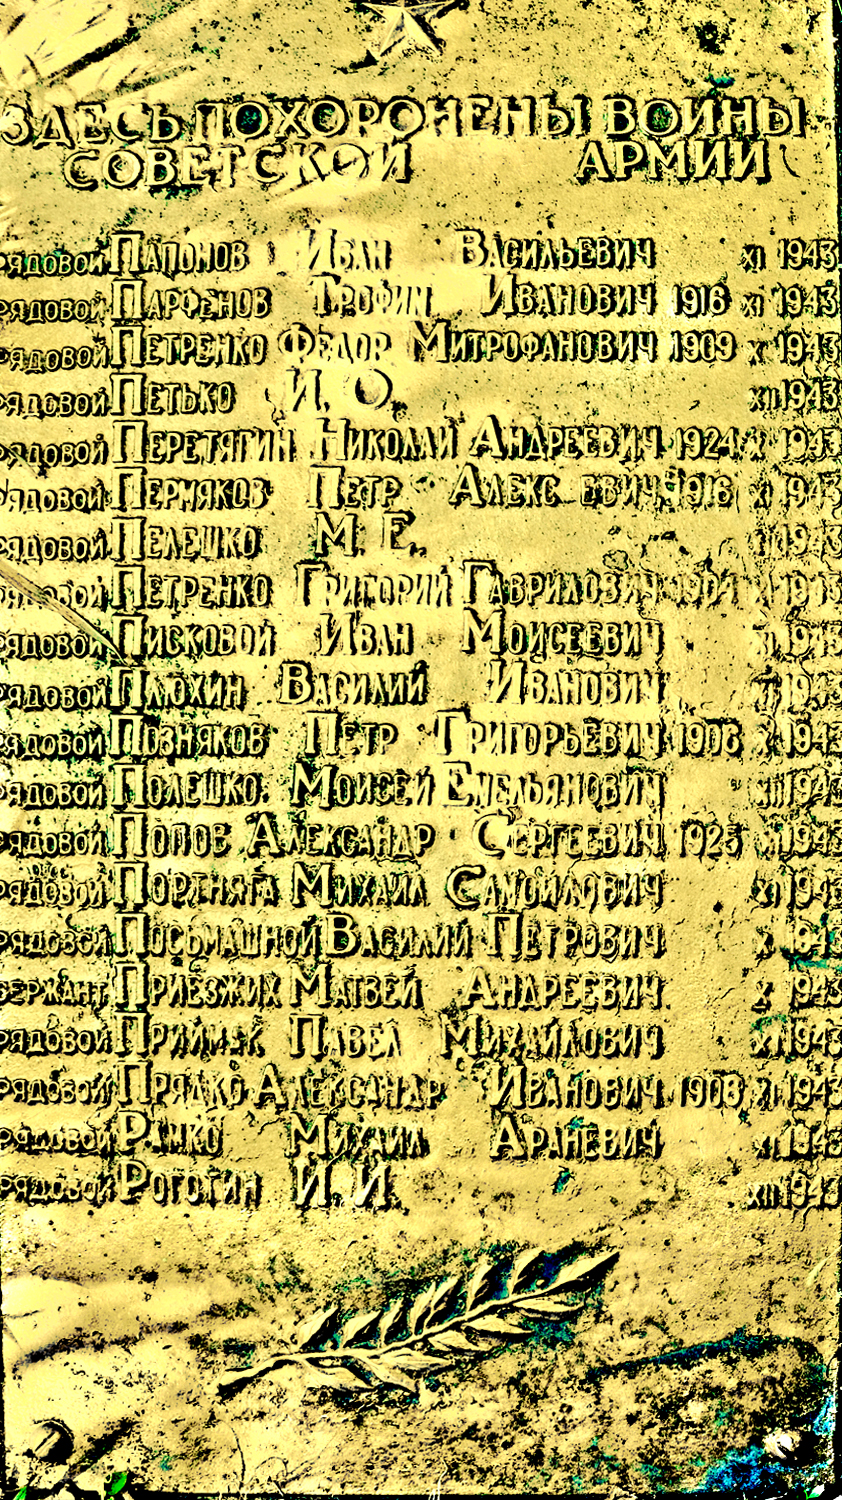 ЗДЕСЬ ПОХОРОНЕНЫ ВОИНЫ
СОВЕТСКОЙ АРМИИ
РЯДОВОЙ ПАПОНОВ ИВАН ВАСИЛЬЕВИЧ XI 1943
РЯДОВОЙ ПАРФЕНОВ ТРОФИМ ИВАНОВИЧ 1916 XI 1943
РЯДОВОЙ ПЕТРЕНКО ФЕДОР МИТРОФАНОВИЧ 1909 X 1943
РЯДОВОЙ ПЕТЬКО И. О. XII 1943
РЯДОВОЙ ПЕРЕТЯГИН НИКОЛАЙ АНДРЕЕВИЧ 1924 X 1943
РЯДОВОЙ ПЕРМЯКОВ ПЕТР 1916 XI 1943
РЯДОВОЙ ПЕЛЕШКО М. Е. 1943
РЯДОВОЙ ПЕТРЕНКО ГРИГОРИЙ ГАВРИЛОВИЧ 1904 1943
РЯДОВОЙ ПИСКОВОЙ ИВАН МОИСЕЕВИЧ XI 1943
РЯДОВОЙ ПЛЮХИН ВАСИЛИЙ ИВАНОВИЧ XI 1943
РЯДОВОЙ ПОЗНЯКОВ ПЕТР ГРИГОРЬЕВИЧ 1906 X 1943
РЯДОВОЙ ПОЛЕШКО МОИСЕЙ ЕМЕЛЬЯНОВИЧ XII 1943
РЯДОВОЙ ПОПОВ АЛЕКСАНДР СЕРГЕЕВИЧ 1925 XI 1943
РЯДОВОЙ ПОРТНЯГА МИХАИЛ САМОЙЛОВИЧ XI 1943
РЯДОВОЙ ПОСЬМАШНОЙ ВАСИЛИЙ ПЕТРОВИЧ X 1943
СЕРЖАНТ ПРИЕЗЖИХ МАТВЕЙ АНДРЕЕВИЧ X 1943
РЯДОВОЙ ПРИЙМАК ПАВЕЛ МИХАЙЛОВИЧ XI 1943
РЯДОВОЙ ПРЯДКО АЛЕКСАНДР ИВАНОВИЧ 1908 XI 1943
РЯДОВОЙ РАМКО МИХАИЛ АРАНЕВИЧ XI 1943
РЯДОВОЙ РОГОТИН И. И. XII 1943